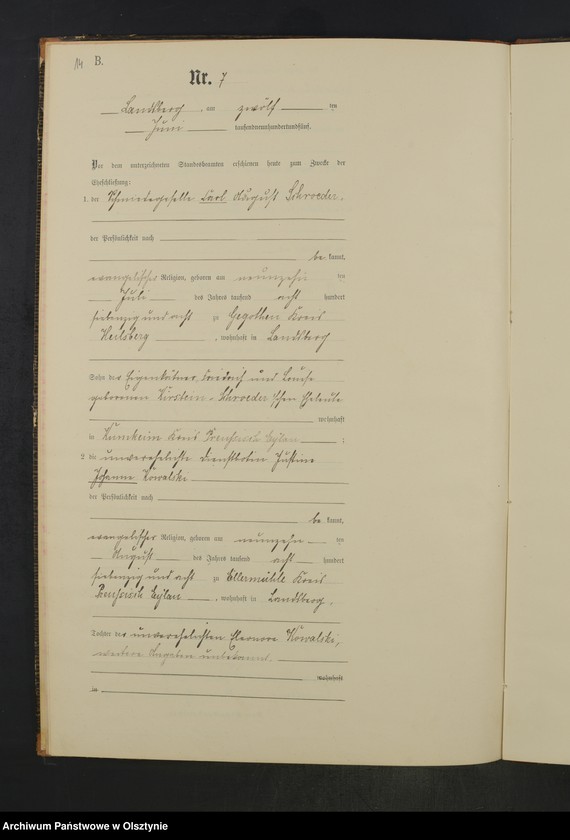 14 B.
Nr. 7
Landsberg, am zwölf ten
Juni tausendneunhundertundfünf.
Vor dem unterzeichneten Standesbeamten erschienen heute zum Zwecke der
Eheschließung:
1. der Schmiedegeselle Carl August Schroeder.
der Persönlichkeit nach
be kannt,
evangelischer Religion, geboren am neunzehn ten
Juli des Jahres tausend acht hundert
siebenzig und acht zu Gegothen Kreis
Heilsberg, wohnhaft in Landsberg
Sohn des Eigenkätners Friedrich und Louise
geborenen Kirstein - Schroeder'schen Eheleute
wohnhaft
in Kumkeim Kreis Preußisch Eylau :
2. die unverehelichte Dienstbotin Justine
Johanne Kowalski
der Persönlichkeit nach
be kannt,
evangelischer Religion, geboren am neunzehn ten
August des Jahres tausend acht hundert
siebenzig und acht zu Ellermühle Kreis
Preußisch Eylau, wohnhaft in Landsberg.
Tochter der unverehelichten Eleonore Kowalski,
weitere Angaben unbekannt.
wohnhaft
in
Archiwum Państwowe w Olsztynie